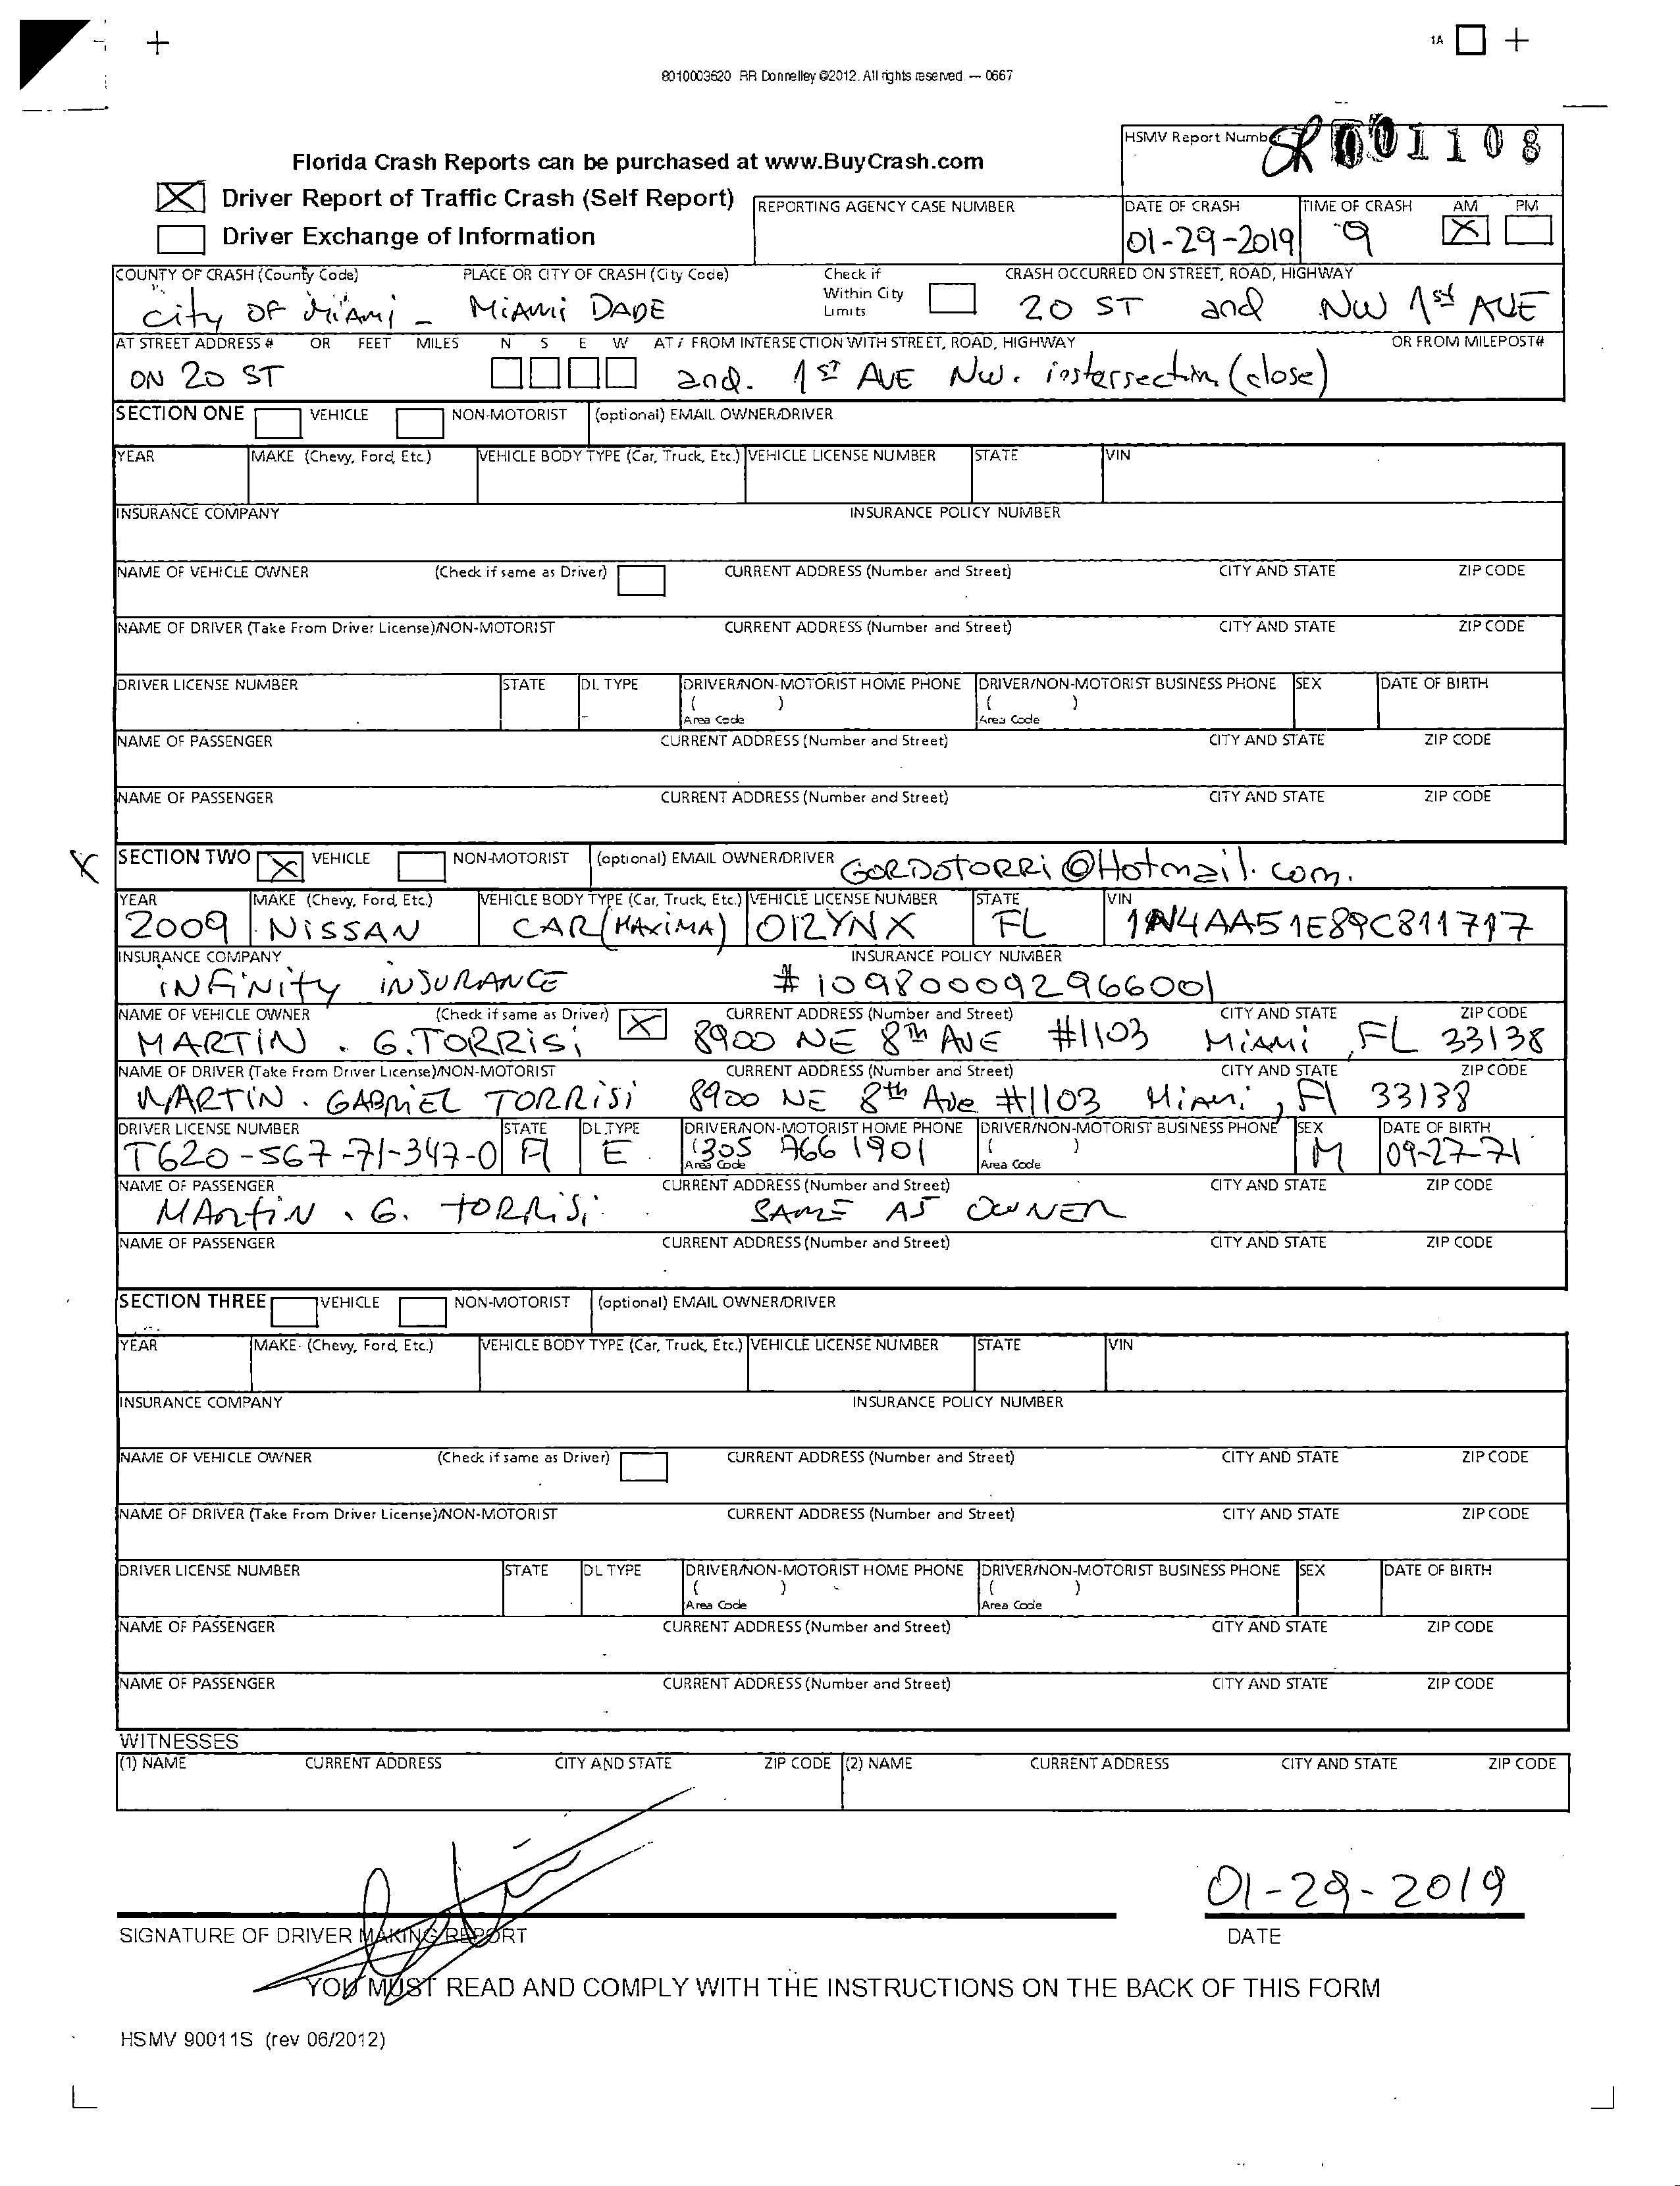 1A
8010003620 RR Donnelley ©2012. All rights reserved. — 0667
HSMV Report Number SR 001108
Florida Crash Reports can be purchased at www.BuyCrash.com
Driver Report of Traffic Crash (Self Report)
Driver Exchange of Information
REPORTING AGENCY CASE NUMBER
DATE OF CRASH TIME OF CRASH AM PM
01-29-2019 9 X
COUNTY OF CRASH (County Code) PLACE OR CITY OF CRASH (City Code) Check if Within City Limits CRASH OCCURRED ON STREET, ROAD, HIGHWAY
City OF MiAMi - MiAMi DADE 20 ST and NW 1st AVE
AT STREET ADDRESS # OR FEET MILES N S E W AT / FROM INTERSECTION WITH STREET, ROAD, HIGHWAY OR FROM MILEPOST#
ON 20 ST and. 1ST AVE NW. instersection (close)
SECTION ONE VEHICLE NON-MOTORIST (optional) EMAIL OWNER/DRIVER
YEAR MAKE (Chevy, Ford, Etc.) VEHICLE BODY TYPE (Car, Truck, Etc.) VEHICLE LICENSE NUMBER STATE VIN
INSURANCE COMPANY INSURANCE POLICY NUMBER
NAME OF VEHICLE OWNER (Check if same as Driver) CURRENT ADDRESS (Number and Street) CITY AND STATE ZIP CODE
NAME OF DRIVER (Take From Driver License)/NON-MOTORIST CURRENT ADDRESS (Number and Street) CITY AND STATE ZIP CODE
DRIVER LICENSE NUMBER STATE DL TYPE DRIVER/NON-MOTORIST HOME PHONE DRIVER/NON-MOTORIST BUSINESS PHONE SEX DATE OF BIRTH
( ) ( )
Area Code Area Code
NAME OF PASSENGER CURRENT ADDRESS (Number and Street) CITY AND STATE ZIP CODE
NAME OF PASSENGER CURRENT ADDRESS (Number and Street) CITY AND STATE ZIP CODE
X SECTION TWO X VEHICLE NON-MOTORIST (optional) EMAIL OWNER/DRIVER GORDOTORRi@Hotmail.com.
YEAR MAKE (Chevy, Ford, Etc.) VEHICLE BODY TYPE (Car, Truck, Etc.) VEHICLE LICENSE NUMBER STATE VIN
2009 NiSSAN CAR (MAXiMA) 012YNX FL 1N4AA51E89C811717
INSURANCE COMPANY INSURANCE POLICY NUMBER
iNFiNity iNSURANCE # 109800092966001
NAME OF VEHICLE OWNER (Check if same as Driver) X CURRENT ADDRESS (Number and Street) CITY AND STATE ZIP CODE
MARTiN . G.TORRiSi 8900 NE 8th AVE #1103 MiAMi, FL 33138
NAME OF DRIVER (Take From Driver License)/NON-MOTORIST CURRENT ADDRESS (Number and Street) CITY AND STATE ZIP CODE
MARTiN . GABRiEL TORRiSi 8900 NE 8th Ave #1103 MiAMi, Fl 33138
DRIVER LICENSE NUMBER STATE DL TYPE DRIVER/NON-MOTORIST HOME PHONE DRIVER/NON-MOTORIST BUSINESS PHONE SEX DATE OF BIRTH
T620-567-71-347-0 Fl E (305 766 1901 ( ) M 09-27-71
Area Code Area Code
NAME OF PASSENGER CURRENT ADDRESS (Number and Street) CITY AND STATE ZIP CODE
MARtiN . G. tORRiSi SAME AS OWNER
NAME OF PASSENGER CURRENT ADDRESS (Number and Street) CITY AND STATE ZIP CODE
SECTION THREE VEHICLE NON-MOTORIST (optional) EMAIL OWNER/DRIVER
YEAR MAKE (Chevy, Ford, Etc.) VEHICLE BODY TYPE (Car, Truck, Etc.) VEHICLE LICENSE NUMBER STATE VIN
INSURANCE COMPANY INSURANCE POLICY NUMBER
NAME OF VEHICLE OWNER (Check if same as Driver) CURRENT ADDRESS (Number and Street) CITY AND STATE ZIP CODE
NAME OF DRIVER (Take From Driver License)/NON-MOTORIST CURRENT ADDRESS (Number and Street) CITY AND STATE ZIP CODE
DRIVER LICENSE NUMBER STATE DL TYPE DRIVER/NON-MOTORIST HOME PHONE DRIVER/NON-MOTORIST BUSINESS PHONE SEX DATE OF BIRTH
( ) ( )
Area Code Area Code
NAME OF PASSENGER CURRENT ADDRESS (Number and Street) CITY AND STATE ZIP CODE
NAME OF PASSENGER CURRENT ADDRESS (Number and Street) CITY AND STATE ZIP CODE
WITNESSES
(1) NAME CURRENT ADDRESS CITY AND STATE ZIP CODE (2) NAME CURRENT ADDRESS CITY AND STATE ZIP CODE
01-29-2019
SIGNATURE OF DRIVER MAKING REPORT DATE
YOU MUST READ AND COMPLY WITH THE INSTRUCTIONS ON THE BACK OF THIS FORM
HSMV 90011S (rev 06/2012)